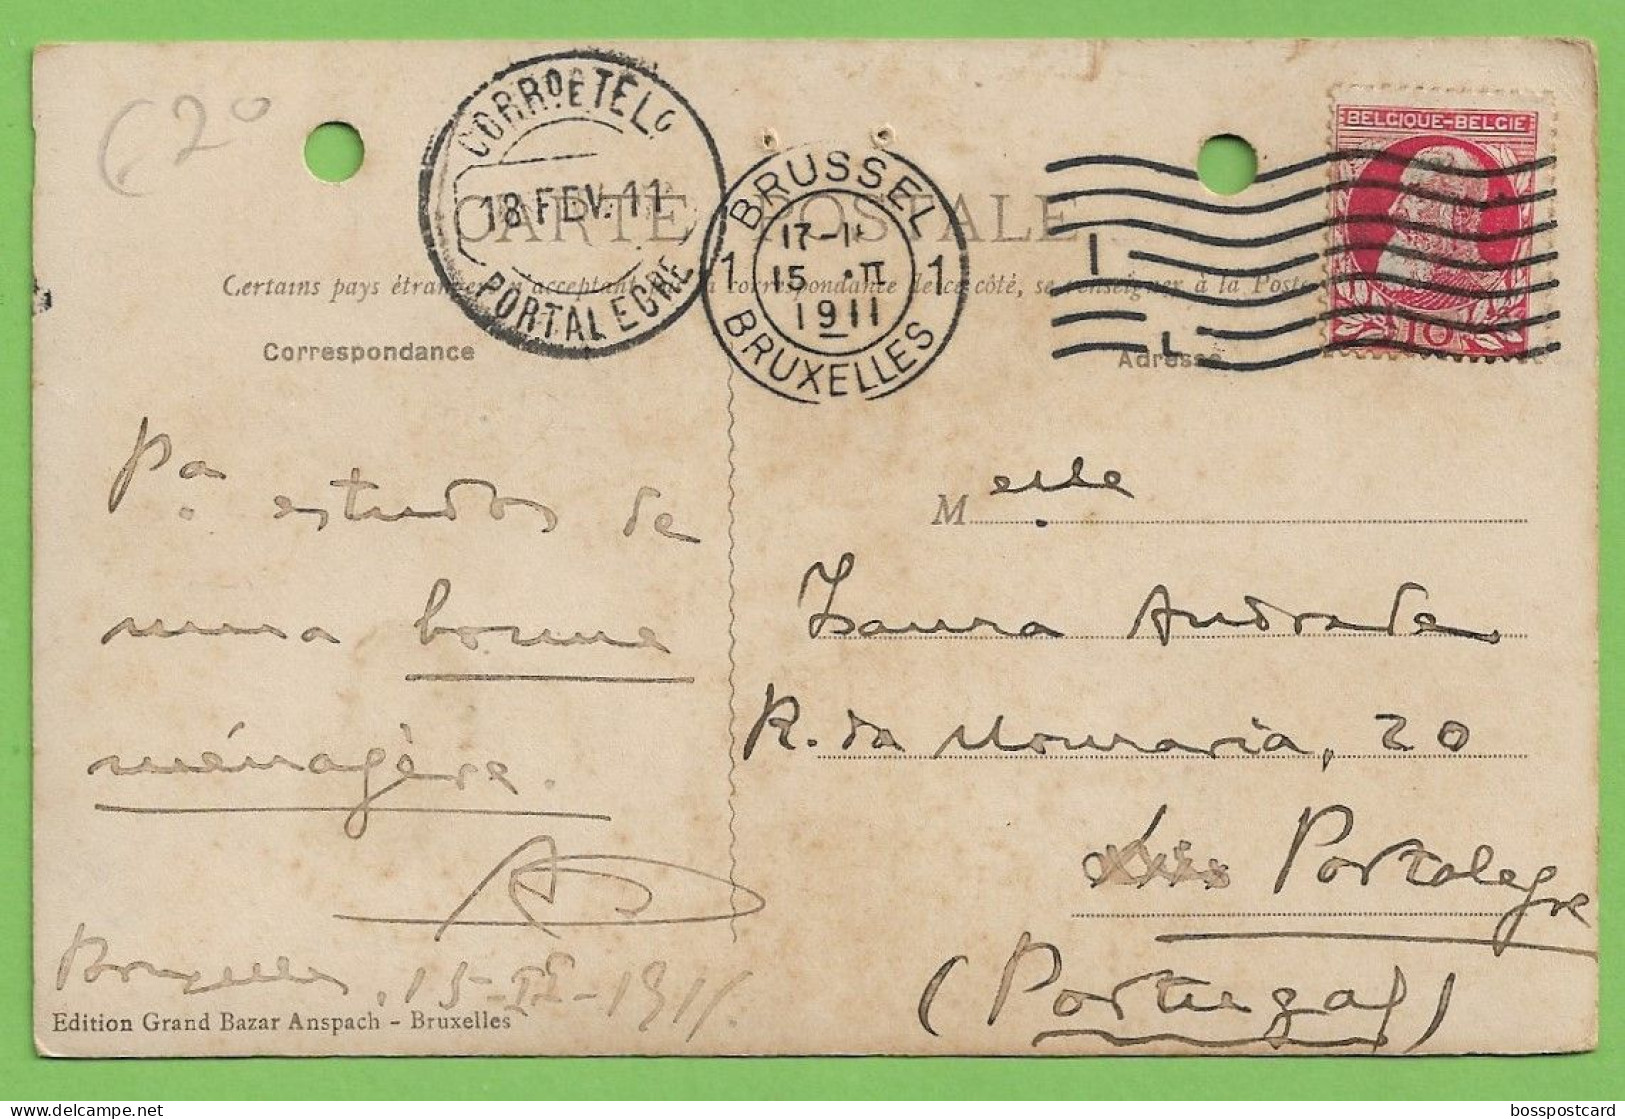 € 2º
CORRº E TELG
18 FEV. 11
PORTALEGRE
BRUSSEL
17-1
15 · II
1911
1 1
BRUXELLES
BELGIQUE-BELGIE
10
CARTE POSTALE
Certains pays étrangers n'acceptant pas la correspondance de ce côté, se renseigner à la Poste
Correspondance
Adresse
Pª estudos de
uma bonne
ménagère.
Bruxelles, 15-II-1911.
Edition Grand Bazar Anspach - Bruxelles
Melle
Laura Andrade
R. da Mouraria, 20
Portalegre
(Portugal)
bosspostcard